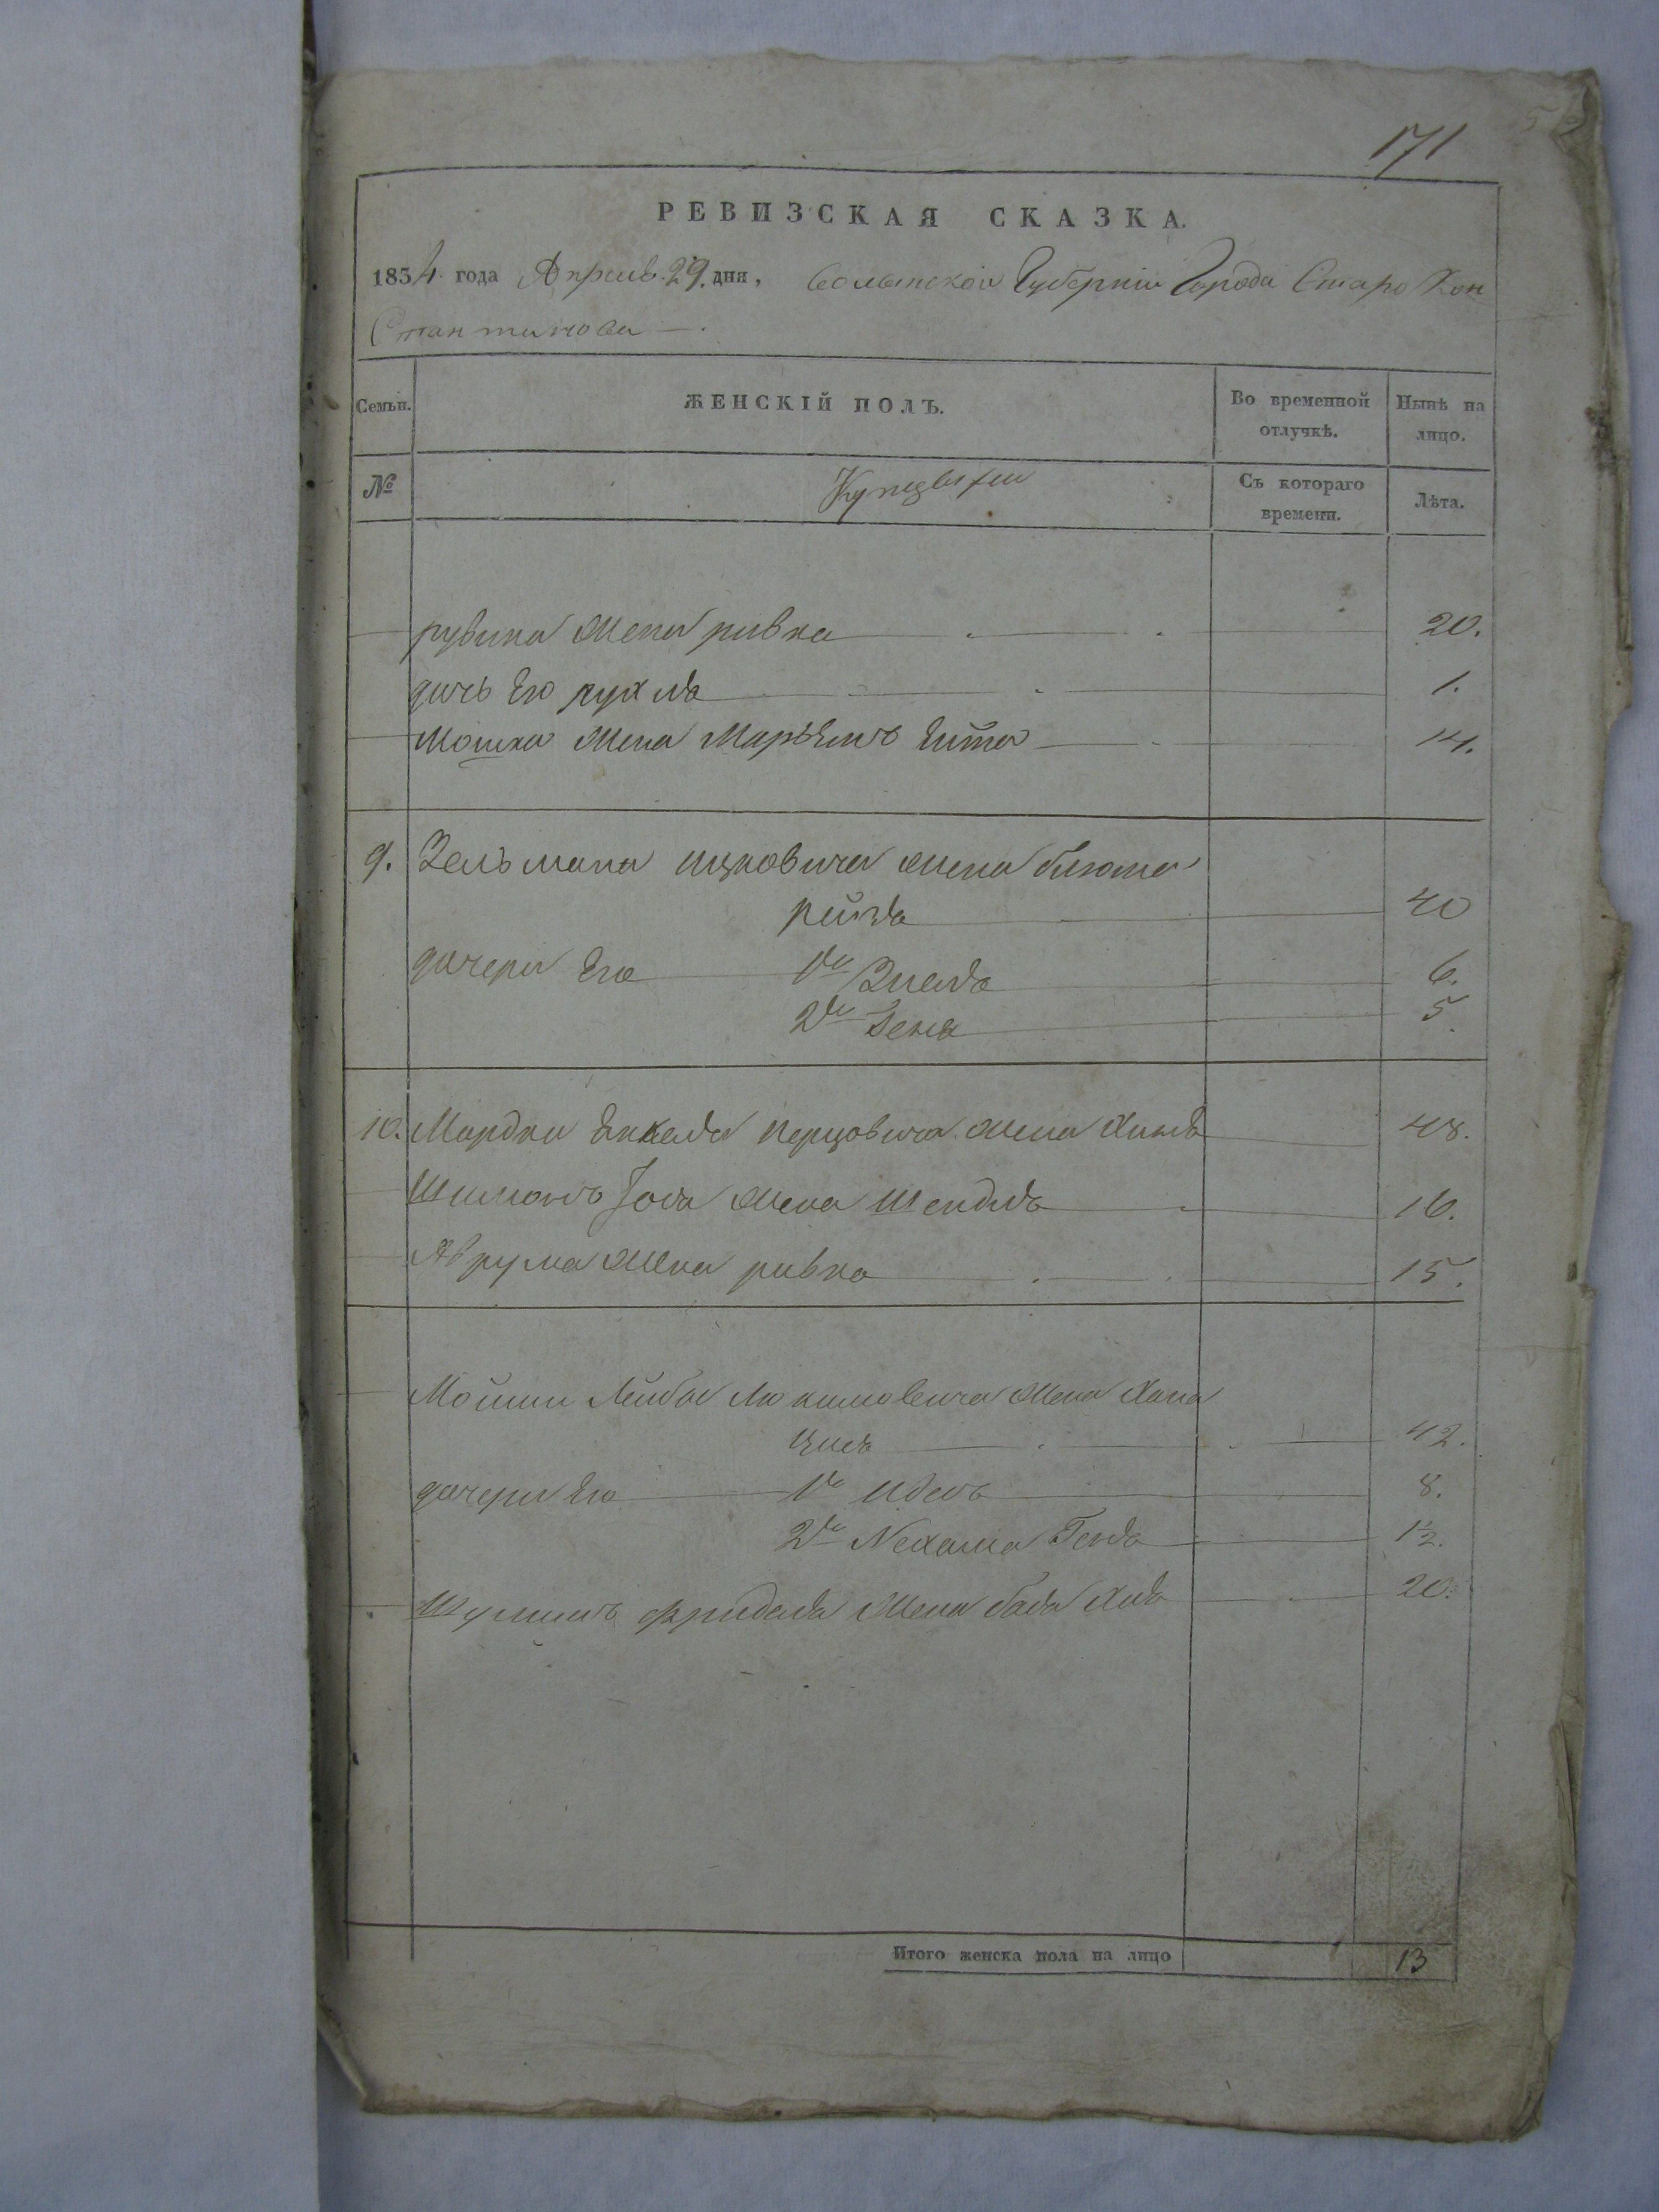 171
РЕВИЗСКАЯ СКАЗКА.
1834 года Апрель 29. дня, Волынской Губерніи Города Старо Кон
стантинова
Семьи. ЖЕНСКІЙ ПОЛЪ. Во временной отлучкѣ. Нынѣ на лицо.
№ Съ котораго времени. Лѣта.
рувина жена ривка 20.
дочь Его рухля 1.
Мошка жена Марьемъ Ейта 14.
9. Зельмана ицковича жена блюма
рейзя 40
дочери Его 1я Злата 6.
2я Геня 5.
10. Мордки Екеля перцовича жена Хиня 48.
Шимонъ жена Шейндля 16.
Аврума жена ривка 15.
Мошки Лейбы жена Хана
Циля 42.
дочери Его 1я идесъ 8.
2я Нехама Геня 1½.
Шулимъ фриделя жена баба Хая 20.
Итого женска пола на лицо 13